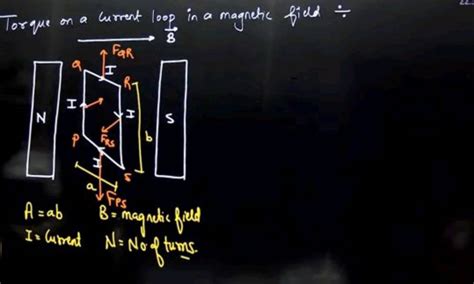 Torque on a current loop in a magnetic field ÷
B
F_QR
Q
I
R
N
I
I
b
S
P
F_RS
I
S
a
F_PS
A = ab B = magnetic field
I = Current N = No of turns